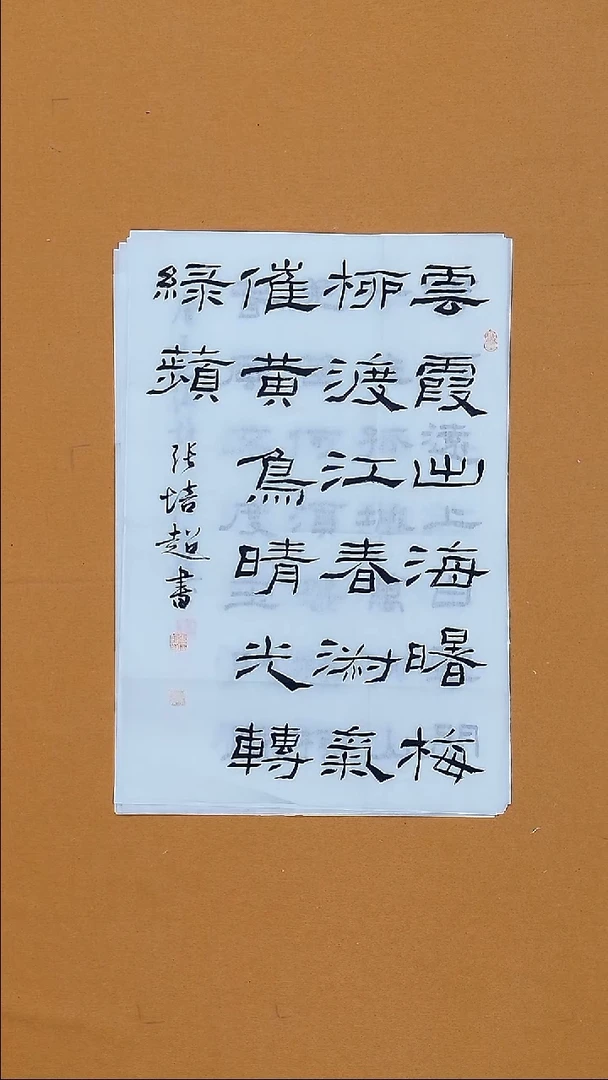 雲霞出海曙梅
柳渡江春淑氣
催黄鳥晴光轉
緑蘋
张培超書